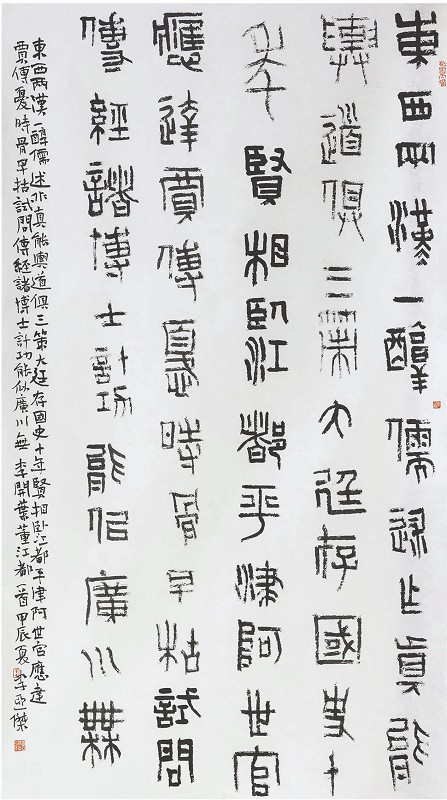 東西兩漢一醇儒述乍真能
與道俱三策大廷存國史十
年賢相臥江都平津阿世官
應達賈傅憂時骨早枯試問
傳經諸博士計功能似廣川無
東西兩漢一醇儒述乍真能與道俱三策大廷存國史十年賢相臥江都平津阿世官應達
賈傅憂時骨早枯試問傳經諸博士計功能似廣川無 李開葉董江都一首 甲辰夏 李亞傑